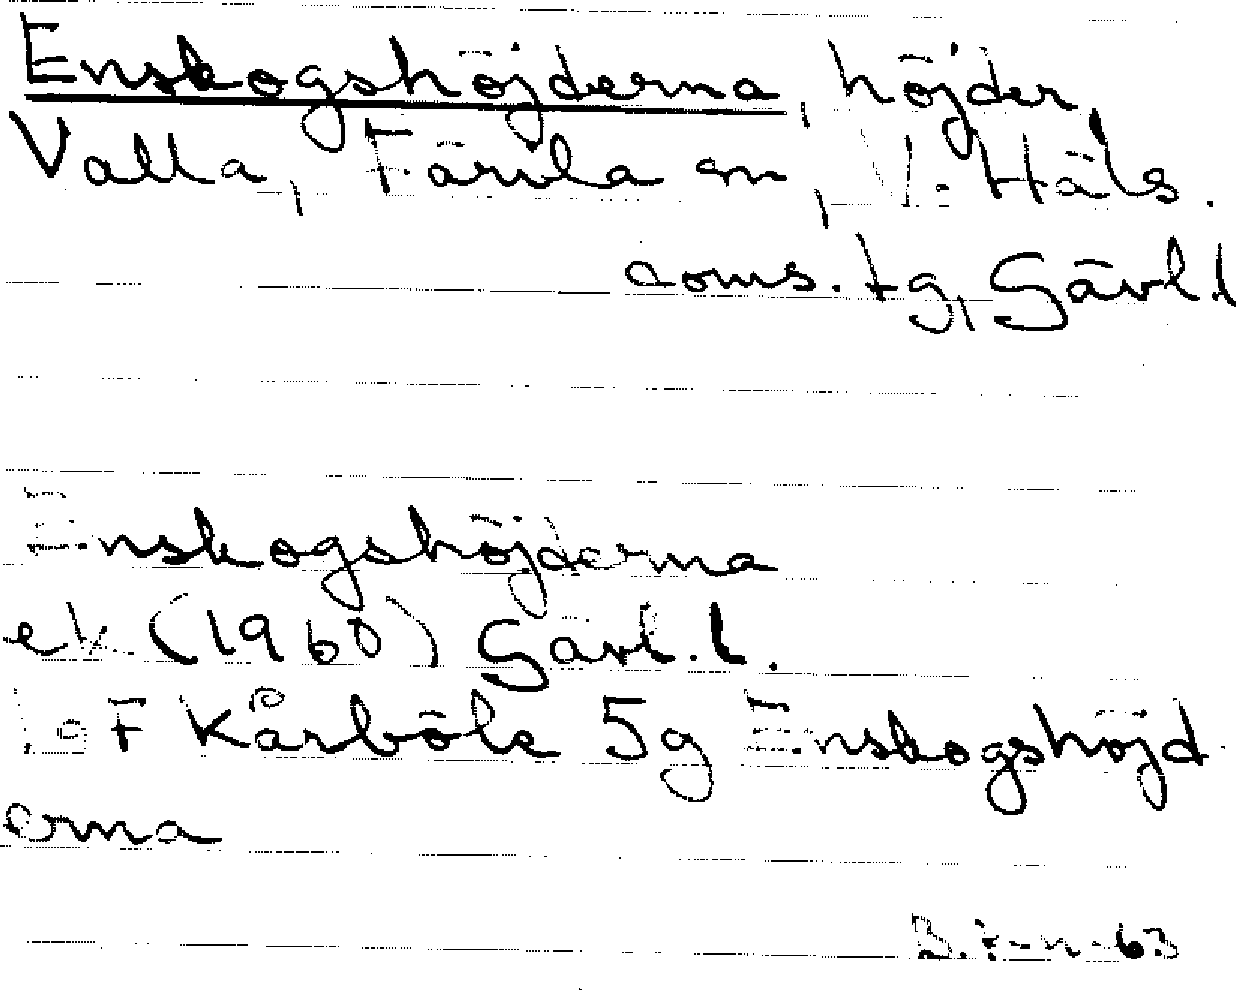 Enskogshöjderna, höjder,
Valla, Färila sn, V. Häls.
doms. tg, Gävl.l
Enskogshöjderna
ek (1960) Gävl.l.
16 F Kårböle 5g Enskogshöjd-
erna
63